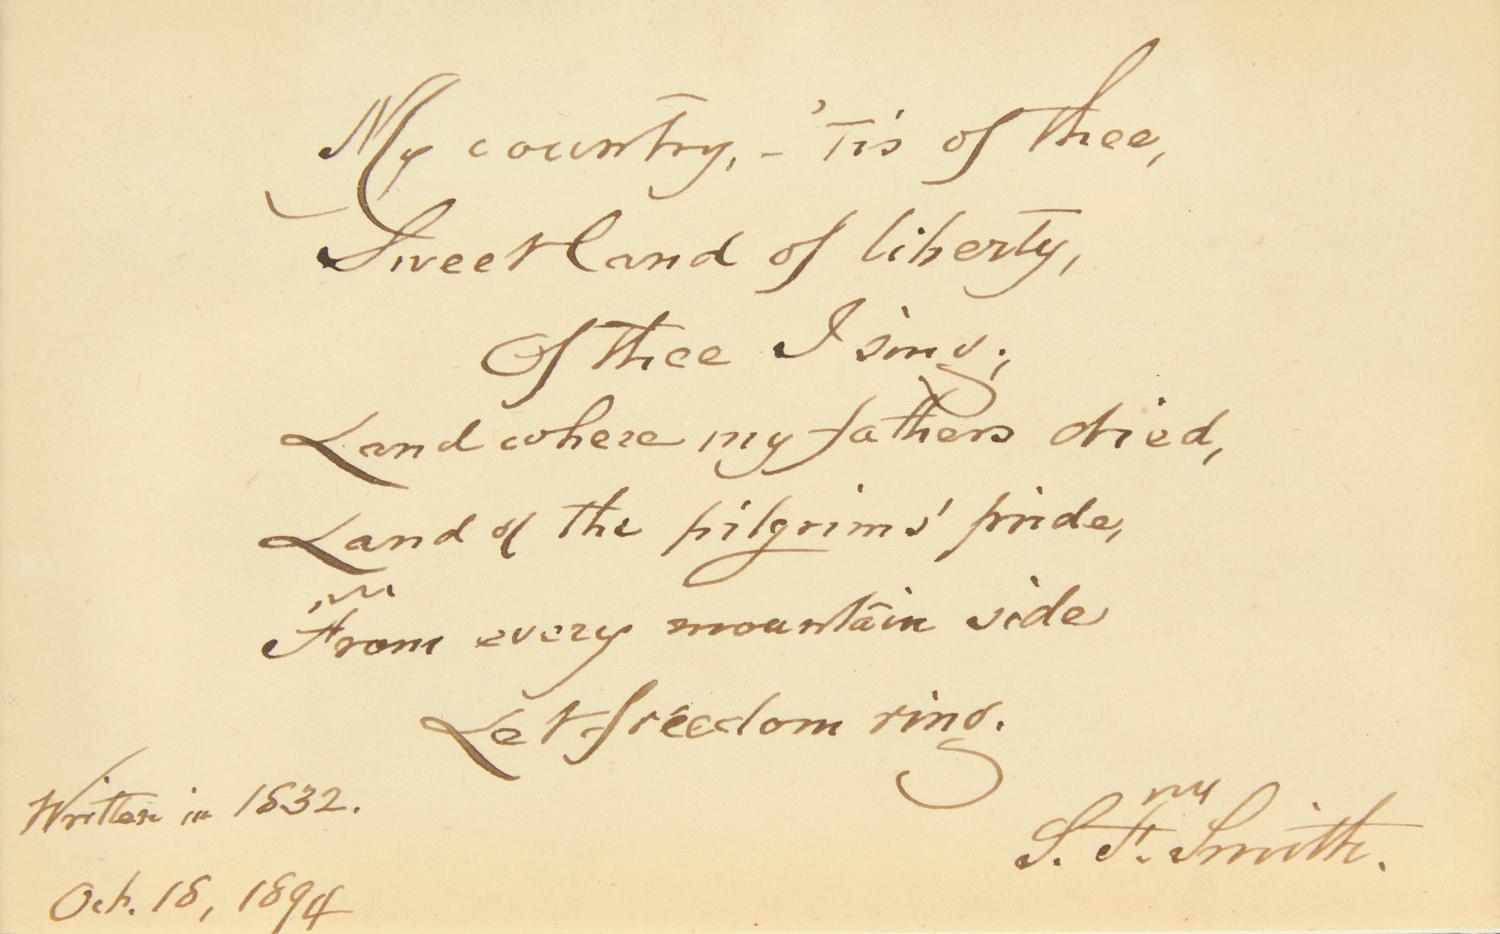 My country, – 'Tis of thee,
Sweet land of liberty,
Of thee I sing;
Land where my fathers died,
Land of the pilgrims' pride,
From every mountain side
Let freedom ring.
Written in 1832.
S. F. Smith.
Oct. 18, 1894